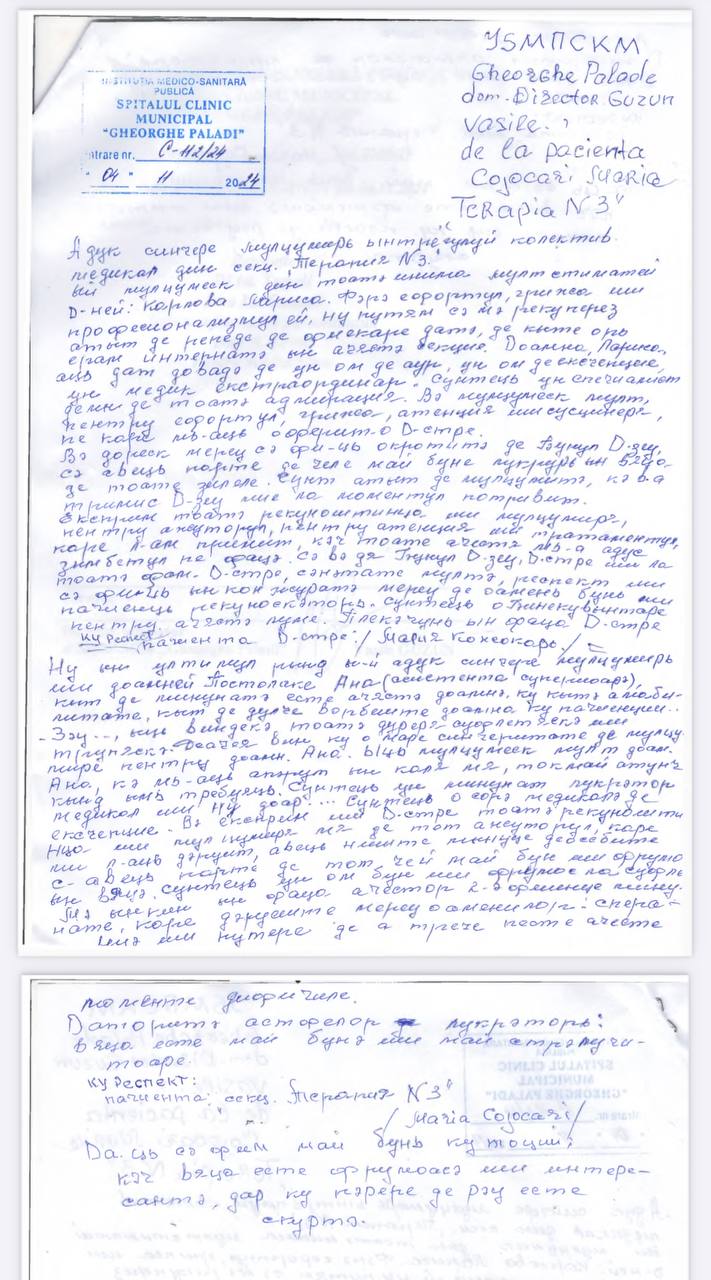 INSTITUȚIA MEDICO-SANITARĂ
PUBLICĂ
SPITALUL CLINIC
MUNICIPAL
"GHEORGHE PALADI"
Intrare nr. C-112/24
"04" 11 2024
Gheorghe Palade
dom. Director Guzun
Vasile
de la pacienta
Cojocari Maria
Terapia N 3"
Адук синчере мулцумирь ынтрегулуй колектив
медикал дин секц. "Терапия N3."
ый мулцумеск дин тоатэ инима мулт стиматей
D-ней: Карлова Лариса. Фэрэ ефортул, грижа ши
професионализмул ей, ну путям сэ мэ рекуперез
атыт де репеде де фиекаре датэ, де кыте орь
ерам интернатэ ын ачастэ секцие. Доамна, Лариса,
аць дат довадэ де ун ом де аур, ун ом де ексчепцие,
ун медик екстраординар. Сунтець ун специалист
демн де тоатэ адмирация. Вэ мулцумеск мулт,
пентру ефортул, грижа, атенция ши сусцинеря,
пе каре мь-аць оферит-о D-стре.
Вэ дореск мереу сэ фи-ць окротитэ де Бунул D-зеу,
сэ авець парте де челе май буне лукрурь ын
де тоате зилеле. Сунт атыт де мулцумитэ, кэ в-а
тримис D-зеу мие ла моментул потривит.
Експрим тоатэ рекуноштинца ши мулцумиря,
пентру ажуторул, пентру атенция ши тратаментул,
каре л-ам примит, кэч тоате ачестя мь-а адус
зымбетул пе фацэ. Сэ вэ дя Бунул D-зеу, D-стре ши ла
тоатэ фам. D-стрэ, сэнэтате мултэ, респект ши
сэ фи-ць ынконжуратэ мереу де оамень бунь ши
пачиенць рекуноскэторь. Сунтець о бинекувынтаре
пентру ачастэ луме. Плекэчунь ын фаца D-стре
ку респект пачиента D-стре: /Мария Кожокарь/
Ну ын ултимул рынд ы-й адук синчере мулцумирь
ши доамней Постолаке Ана (асистента супериоарэ),
кыт де минунатэ есте ачастэ доамнэ. ку кытэ амаби-
литате, кыт де дулче ворбеште доамна ку пачиенций..
-Зэу.., ыць виндекэ, тоатэ дуреря суфлетяскэ ши
трупяскэ. Деачея вин ку о маре синчеритате де мулцу-
мире пентру доамн. Ана. Ыць мулцумеск мулт доам.
Ана, кэ мь-аць апэрут ын каля мя, токмай атунч
кынд ымь требуяць. Сунтець ун минунат лукрэтор
медикал ши ну доар!... Сунтець о сорэ медикалэ де
ексчепцие. Вэ експрим ши D-стре тоатэ рекуношти-
нца ши мулцумиря мя де тот ажуторул, каре
ми л-аць дэруит, авець ниште мынь деосебите
с-авець парте де тот, чей май бун ши фрумос
ын вяцэ. Сунтець ун ом бун ши фрумос ла суфлет
Мэ ынкин ын фаца ачестор 2-э фемеиле мину-
нате, каре дэруеште мереу оаменилор: спера-
нцэ ши путере де а трече песте ачесте
моменте дифичиле.
Dаторитэ астфелор лукрэторь:
вяца есте май бунэ ши май стрэлучи-
тоаре.
Ку Респект:
пачиента секц. "Терапия N3"
/Maria Cojocari/
Dа.ць сэ фим май бунь ку тоций,
кэч вяца есте фрумоасэ ши интере-
сантэ, дар ку пэрере де рэу есте
скуртэ.